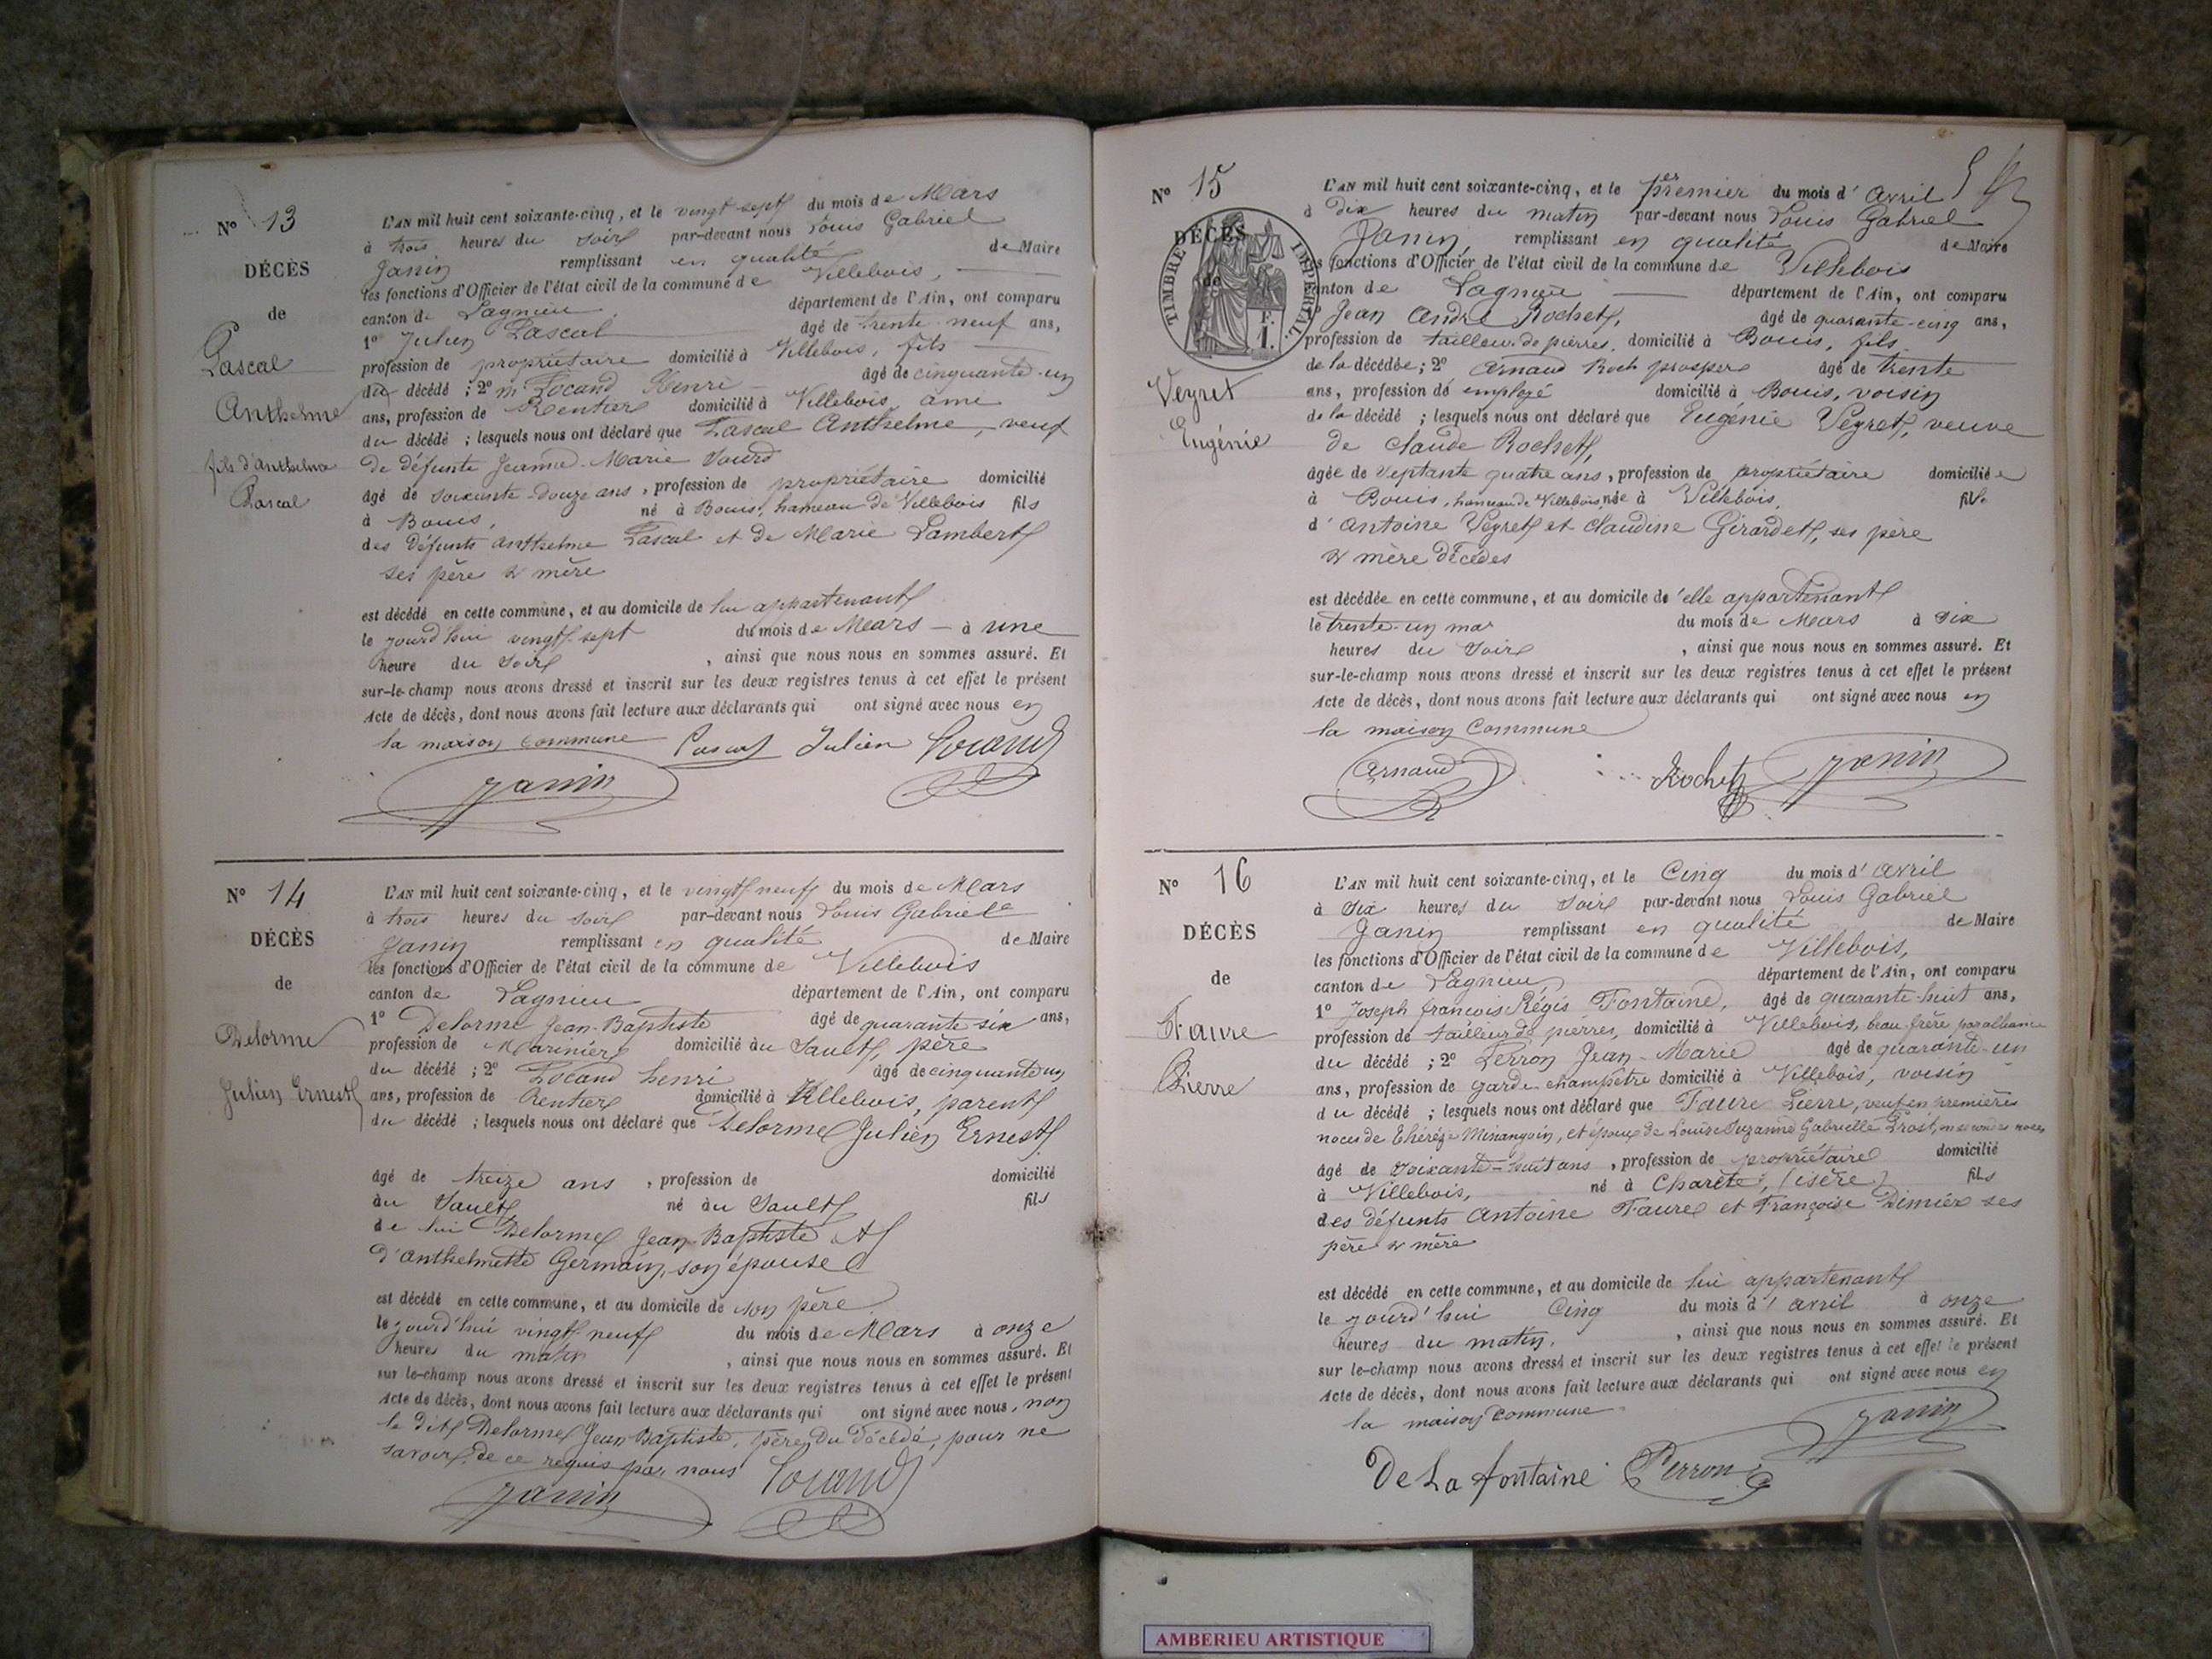 N° 13
DÉCÈS
de
Pascal
Anthelme
fils d'Anthelme
Pascal
L'AN mil huit cent soixante-cinq, et le vingt sept du mois de Mars
à trois heures du soir par-devant nous Louis Gabriel
Janin remplissant en qualité de Maire
les fonctions d'Officier de l'état civil de la commune de Villebois,
canton de Lagnieu, département de l'Ain, ont comparu
1° Julien Pascal âgé de trente-neuf ans,
profession de propriétaire domicilié à Villebois, fils
du décédé ; 2° m Locand Henri âgé de cinquante-un
ans, profession de Rentier domicilié à Villebois, ami
du décédé ; lesquels nous ont déclaré que Pascal Anthelme, veuf
de défunte Jeanne-Marie Sourd
âgé de soixante-douze ans, profession de propriétaire domicilié
à Bouis, né à Bouis, hameau de Villebois fils
des défunts Anthelme Pascal et de Marie Lambert
ses père & mère
est décédé en cette commune, et au domicile de lui appartenant
le jourd'hui vingt-sept du mois de Mars - à une
heure du soir, ainsi que nous nous en sommes assuré. Et
sur-le-champ nous avons dressé et inscrit sur les deux registres tenus à cet effet le présent
Acte de décès, dont nous avons fait lecture aux déclarants qui ont signé avec nous en
la maison commune Pascal Julien Locand
Janin
N° 14
DÉCÈS
de
Delorme
Julien Ernest
L'AN mil huit cent soixante-cinq, et le vingt neuf du mois de Mars
à trois heures du soir par-devant nous Louis Gabriel
Janin remplissant en qualité de Maire
les fonctions d'Officier de l'état civil de la commune de Villebois
canton de Lagnieu département de l'Ain, ont comparu
1° Delorme Jean-Baptiste âgé de quarante-six ans,
profession de Marinier domicilié au Sault, père
du décédé ; 2° Locand henri âgé de cinquante un
ans, profession de Rentier domicilié à Villebois, parent
du décédé ; lesquels nous ont déclaré que Delorme Julien Ernest
âgé de treize ans, profession de domicilié
au Sault né au Sault fils
de lui Delorme Jean-Baptiste et
d'Anthelmette Germain, son épouse
est décédé en cette commune, et au domicile de son père
le jourd'hui vingt-neuf du mois de Mars à onze
heures du matin, ainsi que nous nous en sommes assuré. Et
sur le-champ nous avons dressé et inscrit sur les deux registres tenus à cet effet le présent
Acte de décès, dont nous avons fait lecture aux déclarants qui ont signé avec nous, non
le dit Delorme Jean Baptiste, père du décédé, pour ne
savoir, de ce requis par nous Locand
Janin
N° 15
DÉCÈS
de
TIMBRE IMPÉRIAL
F.
1.
Veyret
Eugénie
L'AN mil huit cent soixante-cinq, et le premier du mois d'avril
à dix heures du matin par-devant nous Louis Gabriel
Janin, remplissant en qualité de Maire
les fonctions d'Officier de l'état civil de la commune de Villebois
canton de Lagnieu département de l'Ain, ont comparu
Jean André Rochet, âgé de quarante-cinq ans,
profession de tailleur de pierres, domicilié à Bouis, fils
de la décédée ; 2° Arnaud Roch prosper âgé de trente
ans, profession de employé domicilié à Bouis, voisin
de la décédé ; lesquels nous ont déclaré que Eugénie Veyret, veuve
de Claude Rochet,
âgée de septante quatre ans, profession de propriétaire domiciliée
à Bouis, hameau de Villebois, née à Villebois, fille
d'Antoine Veyret et Claudine Girardet, ses père
& mère décédés
est décédée en cette commune, et au domicile de elle appartenant
le trente-un mar du mois de Mars à dix
heures du soir, ainsi que nous nous en sommes assuré. Et
sur-le-champ nous avons dressé et inscrit sur les deux registres tenus à cet effet le présent
Acte de décès, dont nous avons fait lecture aux déclarants qui ont signé avec nous en
la maison commune
Arnaud Rochet Janin
N° 16
DÉCÈS
de
Faure
Pierre
L'AN mil huit cent soixante-cinq, et le Cinq du mois d'avril
à six heures du soir par-devant nous Louis Gabriel
Janin remplissant en qualité de Maire
les fonctions d'Officier de l'état civil de la commune de Villebois,
canton de Lagnieu, département de l'Ain, ont comparu
1° Joseph françois Régis Fontaine, âgé de quarante-huit ans,
profession de tailleur de pierres, domicilié à Villebois, beau frère par alliance
du décédé ; 2° Perron Jean-Marie âgé de quarante-un
ans, profession de garde champêtre domicilié à Villebois, voisin
du décédé ; lesquels nous ont déclaré que Faure Pierre, veuf en premières
noces de Thérèze Minangoin, et époux de Louise Suzanne Gabrielle Prost, en secondes noces
âgé de soixante-huit ans, profession de propriétaire domicilié
à Villebois, né à Charète, (isère) fils
des défunts Antoine Faure et Françoise Dimier ses
père & mère
est décédé en cette commune, et au domicile de lui appartenant
le jourd'hui Cinq du mois d'avril à onze
heures du matin, ainsi que nous nous en sommes assuré. Et
sur le-champ nous avons dressé et inscrit sur les deux registres tenus à cet effet le présent
Acte de décès, dont nous avons fait lecture aux déclarants qui ont signé avec nous en
la maison commune Janin
De La fontaine Perron
AMBERIEU ARTISTIQUE